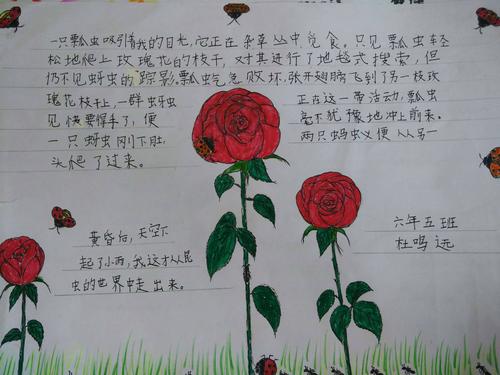 一只瓢虫吸引着我的目光,它正在杂草丛中觅食。只见瓢虫轻
松地爬上玫瑰花的枝干,对其进行了地毯式搜索,但
仍不见蚜虫的踪影。瓢虫气急败坏,张开翅膀飞到了另一枝玫
瑰花枝上,一群蚜虫
正在这一带活动,瓢虫
见快要得手了,便
毫不犹豫地冲上前来。
一只蚜虫刚下肚,
两只蚂蚁便从另一
头爬了过来。
黄昏后,天空下
起了小雨,我这才从昆
虫的世界中走出来。
六年五班
杜鸣远